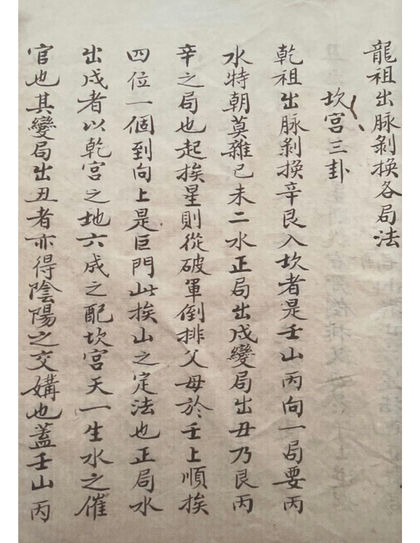 龍祖出脉剝換各局法
坎宮三卦
乾祖出脉剝換辛艮入坎者是壬山丙向一局要丙
水特朝莫雜巳未二水正局出戍變局出丑乃艮丙
辛之局也起挨星則從破軍倒排父母於壬上順挨
四位一個到向上是巨門此挨山之定法也正局水
出戍者以乾宮之地六成之配坎宮天一生水之催
官也其變局出丑者亦得陰陽之交媾也蓋壬山丙